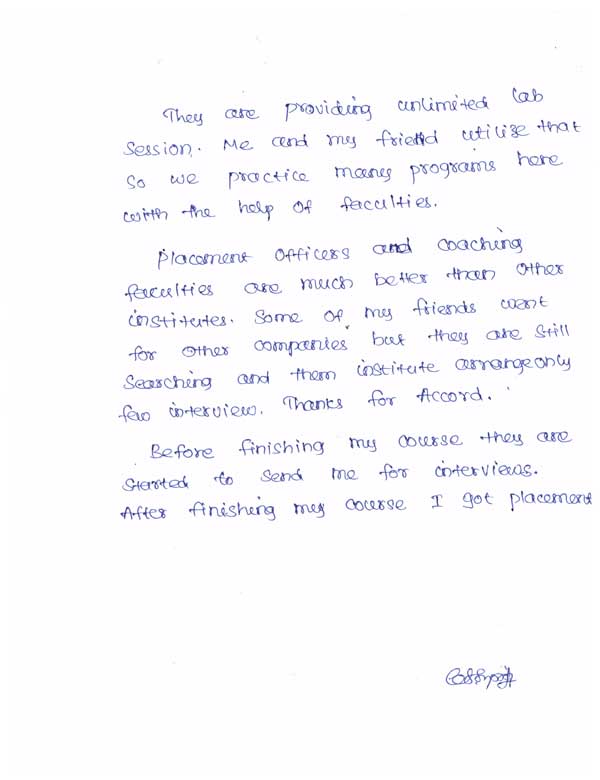 They are providing unlimited lab
session. Me and my friend utilize that
so we practice many programs here
with the help of faculties.
Placement officers and coaching
faculties are much better than other
institutes. Some of my friends went
for other companies but they are still
searching and them institute arrange only
few interview. Thanks for Accord.
Before finishing my course they are
started to send me for interviews.
After finishing my course I got placement